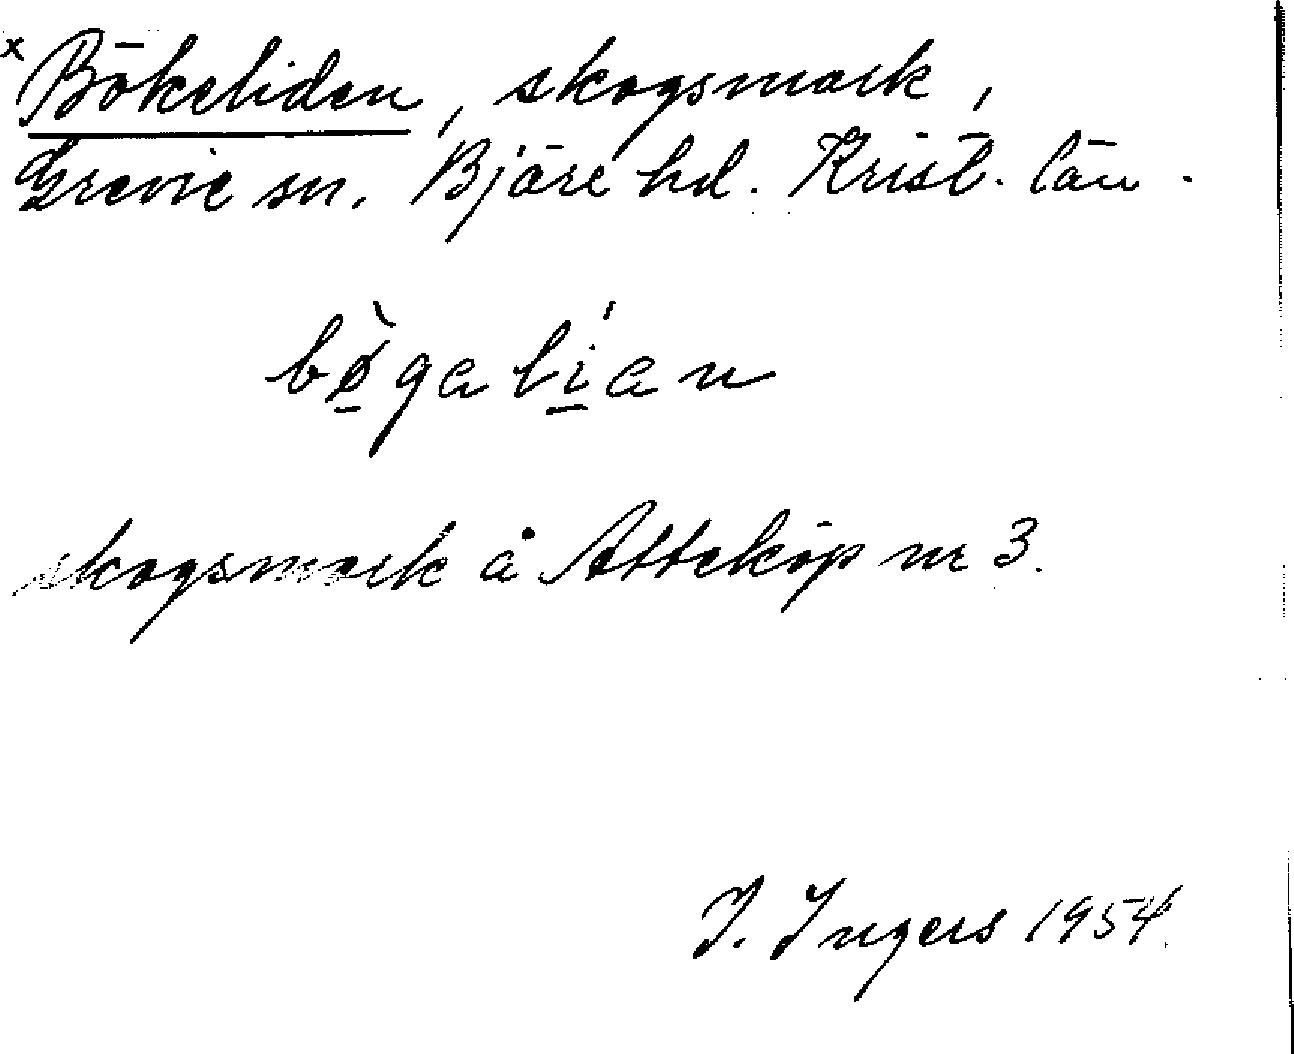 x Bökeliden, skogsmark,
Grevie sn. Bjäre hd. Krist. län.
bø̀galían
skogsmark å Atteköp nr 3.
I. Ingers 1954.